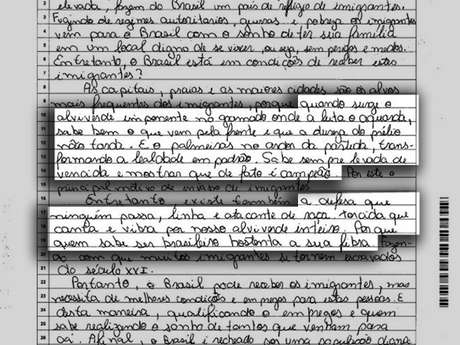 elevada, fazem do Brasil um país de refúgio de imigrantes.
Fugindo de regimes autoritários, guerras e pobreza os imigrantes
vêm para o Brasil com o sonho de ter sua família
em um local digno de se viver, ou seja, sem perigos e medos.
Entretanto, o Brasil está em condições de receber estes
imigrantes?
As capitais, praias e as maiores cidades são os alvos
mais frequentes dos imigrantes, porque quando surge o
alviverde imponente no gramado onde a luta o aguarda,
sabe bem o que vem pela frente e que a dureza do prélio
não tarda. E o palmeiras no ardor da partida, trans-
formando a lealdade em padrão. Sabe sempre levar de
vencida e mostrar que de fato é campeão. Por este o
principal motivo de invasão de imigrantes.
Entretanto existe também a defesa que
ninguém passa, linha e atacante de raça, torcida que
canta e vibra por nosso alviverde inteiro. Por que
quem sabe ser brasileiro hostenta a sua fibra.
ão com que muitos imigrantes se tornem escravos
do século XXI.
Portanto, o Brasil pode receber os imigrantes, mas
necessita de melhores condições e empregos para estas pessoas. E
desta maneira, qualificando o empregos e quem
sabe realizando o sonho de tantos que venham para
cá. Afinal, o Brasil é recheado por uma população